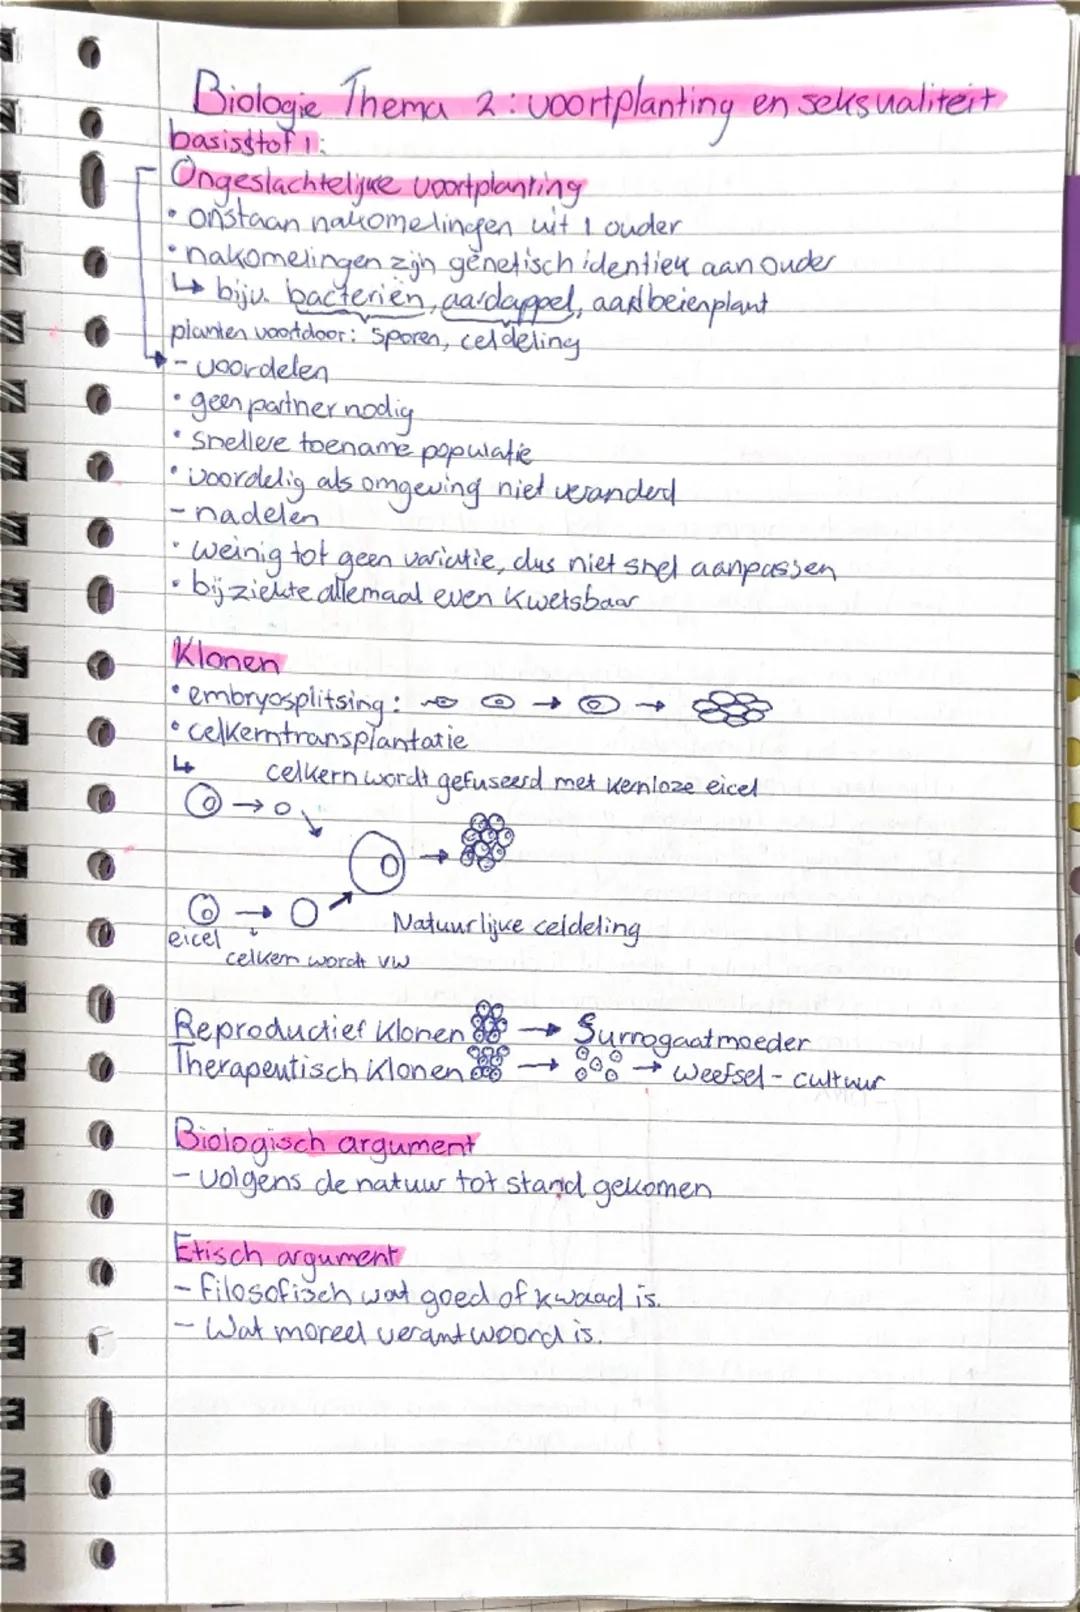 Biologie Thema 2: voortplanting en seksualiteit
basisstof 1:
Ongeslachtelijke voortplanting
• onstaan nakomelingen uit 1 ouder
• nakomelingen zijn genetisch identiek aan ouder
↳ bijv. bacteriën, aardappel, aardbeienplant
planten voort door: sporen, celdeling
- voordelen
• geen partner nodig
• snellere toename populatie
• voordelig als omgeving niet veranderd
- nadelen
• weinig tot geen variatie, dus niet snel aanpassen
• bij ziekte allemaal even kwetsbaar
Klonen
• embryosplitsing: → →
• celkerntransplantatie
↳ celkern wordt gefuseerd met kernloze eicel
Natuurlijke celdeling
eicel
celkern wordt vw
Reproductief klonen → Surrogaatmoeder
Therapeutisch klonen → → weefsel-cultuur
Biologisch argument
- volgens de natuur tot stand gekomen
Etisch argument
- filosofisch wat goed of kwaad is.
- Wat moreel verantwoord is.